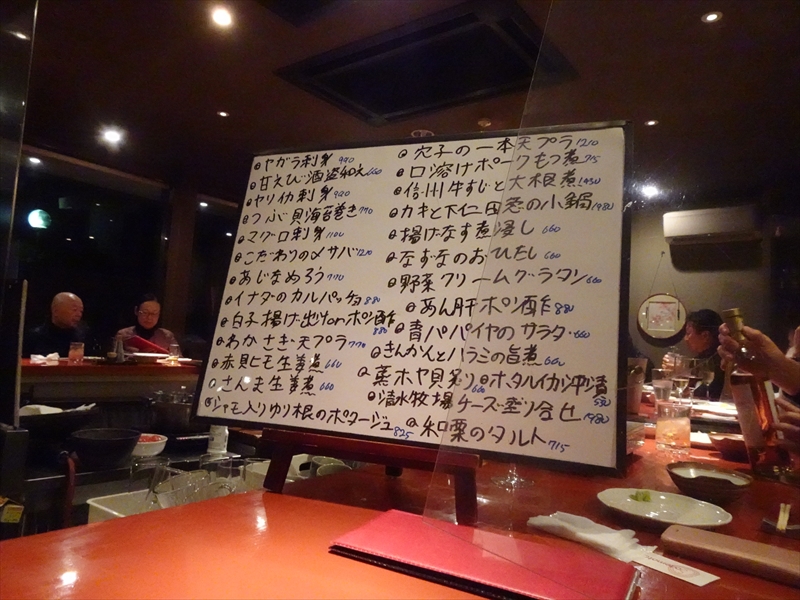 ヤガラ刺身 990
甘えび酒盗和え 660
ヤリイカ刺身 990
つぶ貝海苔巻き 770
マグロ刺身 1100
こだわりの〆サバ 1210
あじなめろう 770
イナダのカルパッチョ 880
白子揚げ出しorポン酢 880
わかさぎ天プラ 770
赤貝ヒモ生姜煮 660
さんま生姜煮 660
シャモ入りゆり根のポタージュ 825
穴子の一本天プラ 1210
口溶けポークもつ煮 715
信州牛すじと大根煮
カキと下仁田葱の小鍋 1980
揚げなす煮浸し 660
なずなのおひたし 660
野菜クリームグラタン 660
あん肝ポン酢 880
青パパイヤのサラダ 660
きんかんとハラミの旨煮
蒸ホヤ貝炙り ホタルイカ沖漬
清水牧場チーズ盛り合せ 1980
和栗のタルト 715